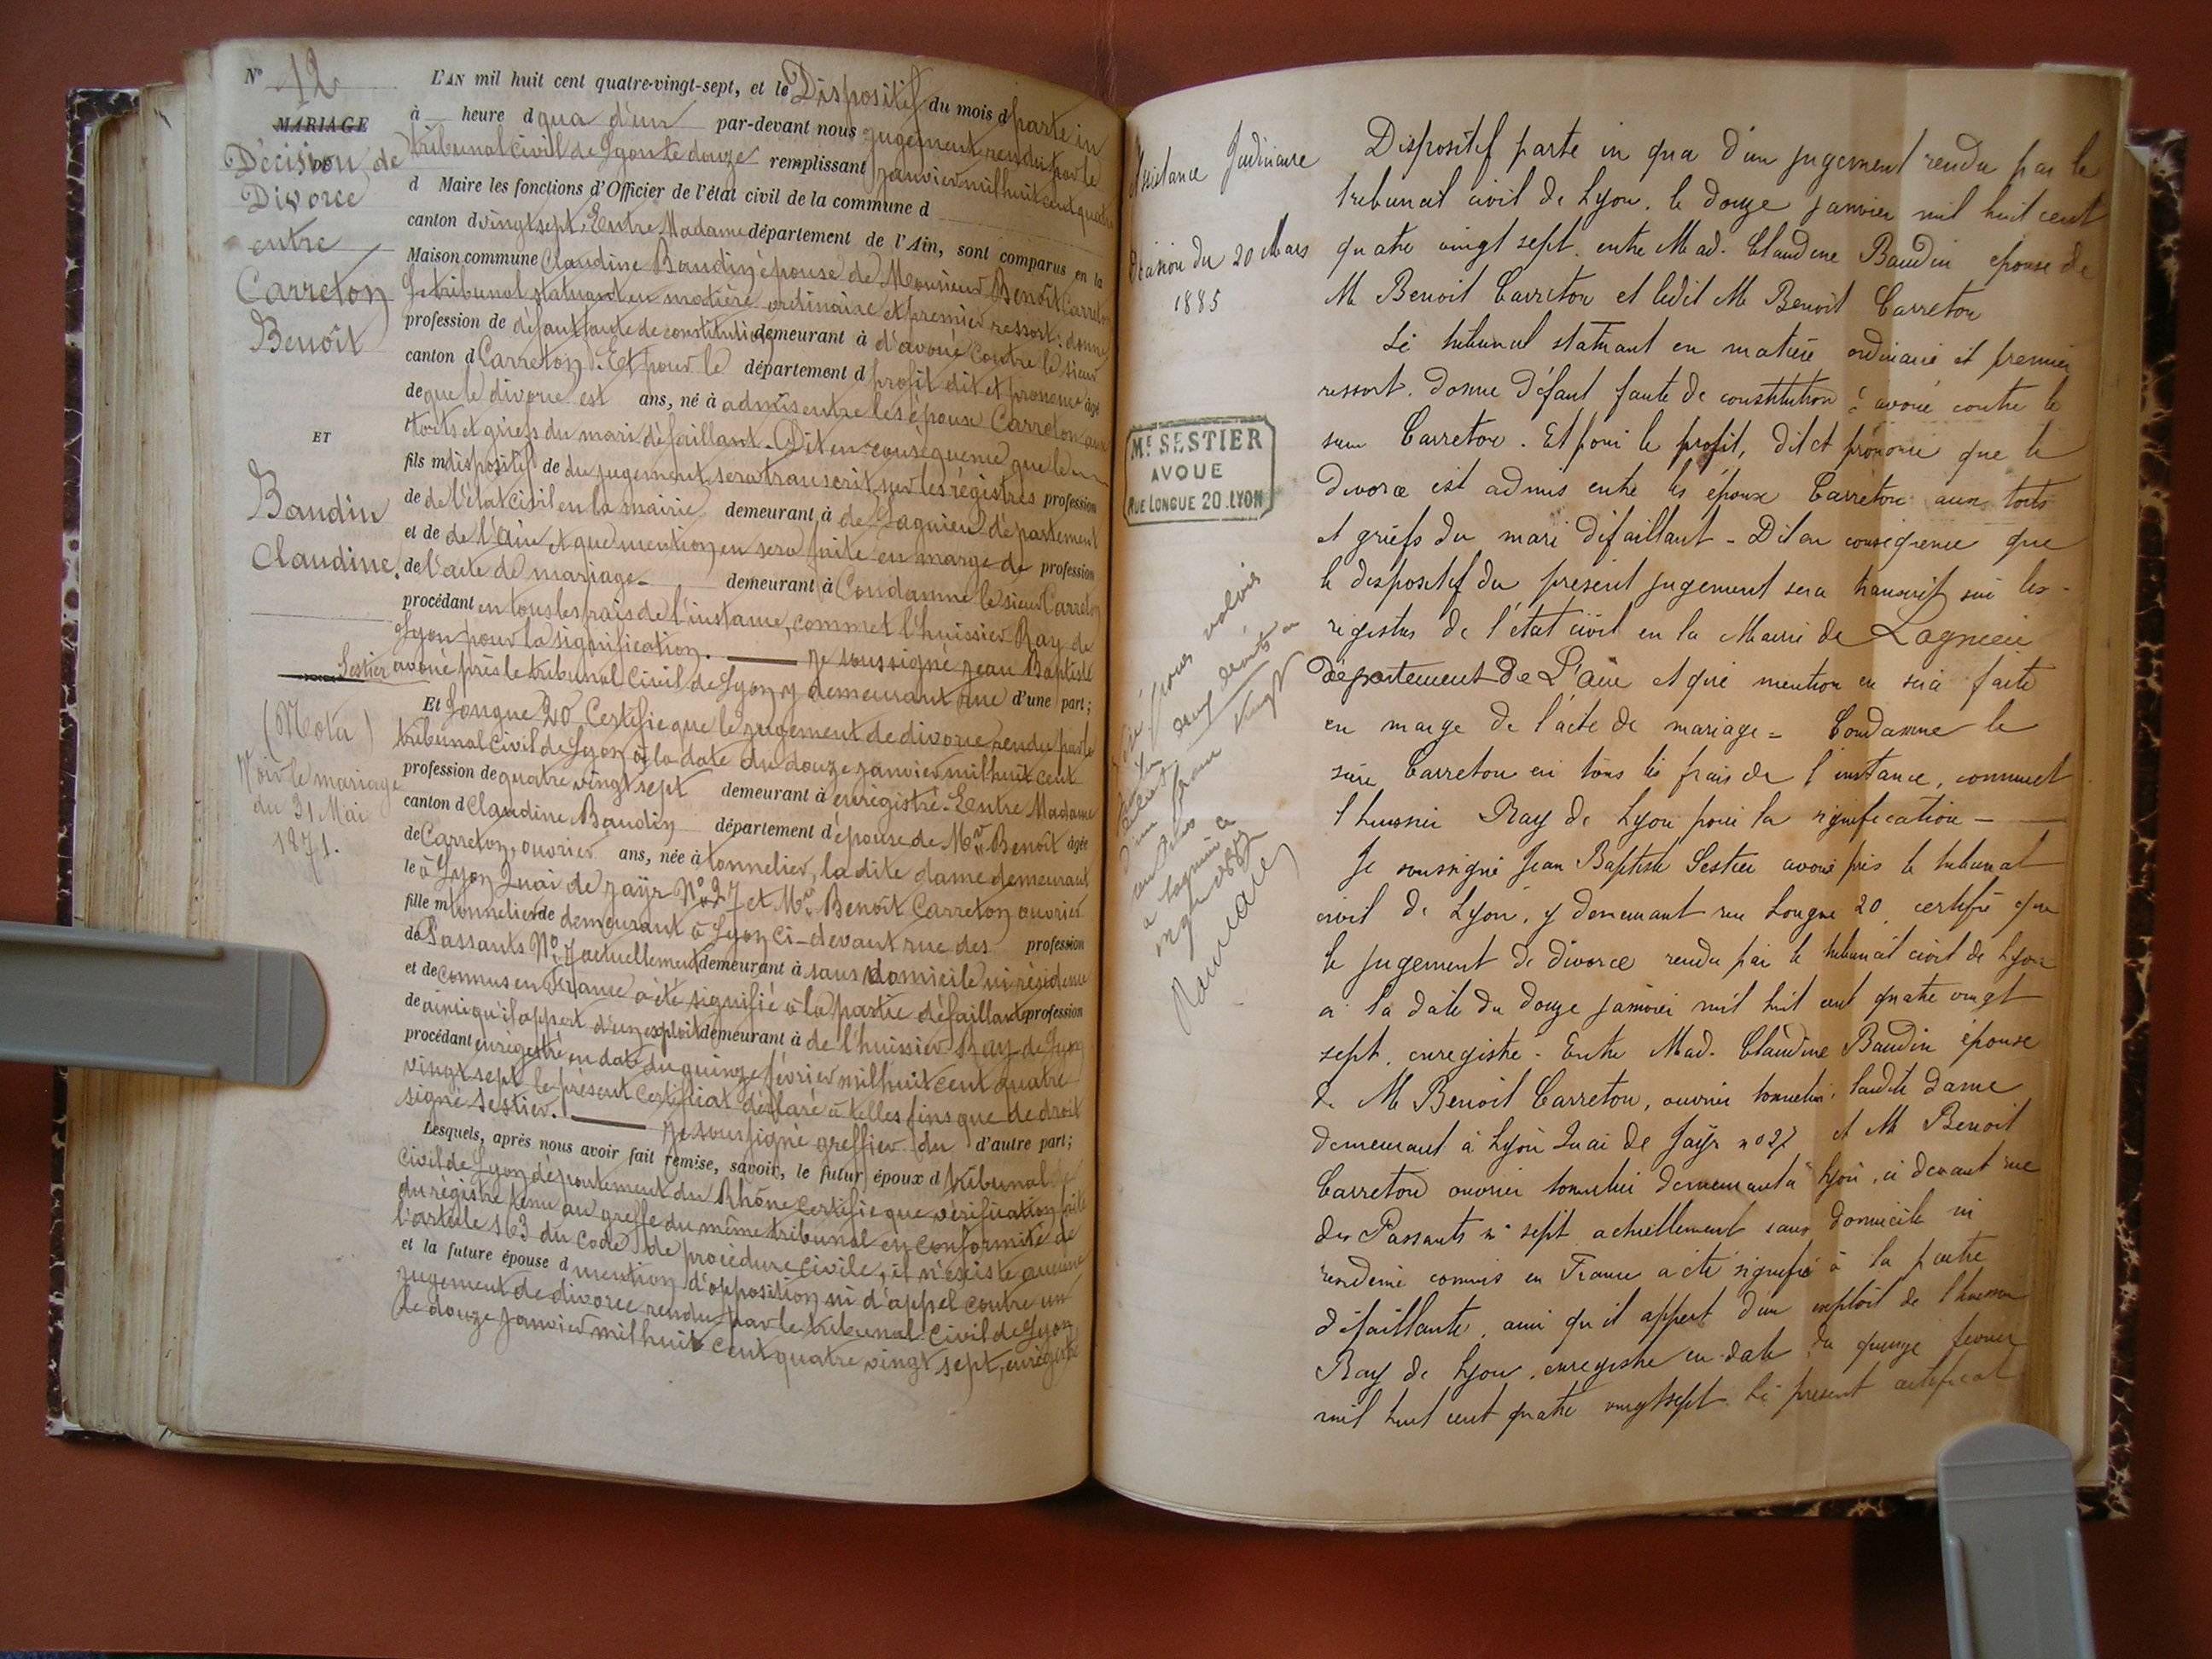 N° 12
MARIAGE
DE
Décision de
Divorce
entre
Carreton
Benoît
ET
Baudin
Claudine.
(Nota)
Voir le mariage
du 31 Mai
1871.
L'AN mil huit cent quatre-vingt-sept, et le Dispositif du mois d parte in
à heure d qua d'un par-devant nous jugement rendu par le
tribunal civil de Lyon le douze remplissant janvier mil huit cent quatre
d Maire les fonctions d'Officier de l'état civil de la commune d
canton d vingt sept. Entre Madame département de l'Ain, sont comparus en la
Maison commune Claudine Baudin épouse de Monsieur Benoît Carreton
Le tribunal statuant en matière ordinaire et premier ressort: donne
profession de défaut faute de constitution demeurant à d'avoué contre le sieur
canton d Carreton. Et pour le département d profit dit et prononce âgé
de que le divorce est ans, né à admis entre les époux Carreton aux
torts et griefs du mari défaillant. Dit en conséquence que le
fils m dispositif de du jugement sera transcrit sur les régistres profession
de de l'état civil en la mairie demeurant à de Lagnieu département
et de de l'Ain et que mention en sera faite en marge de profession
de l'acte de mariage - demeurant à Condamne le sieur Carreton
procédant en tous les frais de l'instance, commet l'huissier Ray de
Lyon pour la signification. Je soussigné Jean Baptiste
Sestier avoué près le tribunal Civil de Lyon y demeurant rue d'une part;
Et Longue 20 Certifie que le jugement de divorce rendu par le
tribunal Civil de Lyon à la date du douze janvier mil huit cent
profession de quatre vingt sept demeurant à enregistré. Entre Madame
canton d Claudine Baudin département d épouse de Mr Benoît âgée
de Carreton, ouvrier ans, née à tonnelier, la dite dame demeurant
le à Lyon Quai de Jayr N° 27 et Mr Benoît Carreton ouvrier
fille m tonnelier de demeurant à Lyon ci-devant rue des profession
de Passants N° 7 actuellement demeurant à sans domicile ni résidence
et de connus en France a été signifié à la partie défaillante profession
de ainsi qu'il appert d'un exploit demeurant à de l'huissier Ray de Lyon
procédant enrégistré en date du quinze février mil huit cent quatre
vingt sept le présent Certificat déclaré à telles fins que de droit
signé Sestier. Je soussigné greffier du d'autre part;
Lesquels, après nous avoir fait remise, savoir, le futur époux d tribunal
civil de Lyon département du Rhône certifie que vérification faite
du régistre tenu au greffe du même tribunal en conformité de
l'article 163 du Code de procédure civile, il n'existe aucune
et la future épouse d mention d'opposition ni d'appel contre un
jugement de divorce rendu par le tribunal Civil de Lyon
le douze janvier mil huit cent quatre vingt sept, enrégistré
Assistance Judiciaire
Décision du 20 Mars
1885
Me SESTIER
AVOUE
RUE LONGUE 20. LYON
Dispositif parte in qua d'un jugement rendu par le
tribunal civil de Lyon, le douze janvier mil huit cent
quatre vingt sept. entre Mad. Claudine Baudin épouse de
M Benoit Carreton et ledit M Benoit Carreton
Le tribunal statuant en matière ordinaire et premier
ressort. donne défaut faute de constitution d'avoué contre le
sieur Carreton. Et pour le profit, dit et prononce que le
divorce est admis entre les époux Carreton aux torts
et griefs du mari défaillant - Dit en conséquence que
le dispositif du présent jugement sera transcrit sur les
registres de l'état civil en la Mairie de Lagnieu
département de L'ain et que mention en sera faite
en marge de l'acte de mariage = Condamne le
sieur Carreton en tous les frais de l'instance, commet
l'huissier Ray de Lyon pour la signification -
Je soussigné Jean Baptiste Sestier avoué près le tribunal
civil de Lyon, y demeurant rue Longue 20, certifie que
le jugement de divorce rendu par le tribunal civil de Lyon
à la date du douze janvier mil huit cent quatre vingt
sept, enregistré - Entre Mad. Claudine Baudin épouse
de M Benoit Carreton, ouvrier tonnelier, ladite dame
demeurant à Lyon Quai de Jayr n° 27 et M Benoit
Carreton ouvrier tonnelier demeurant à Lyon, ci devant rue
des Passants n° sept actuellement sans domicile ni
résidence connus en France a été signifié à la partie
défaillante, ainsi qu'il appert d'un exploit de l'huissier
Ray de Lyon, enregistré en date du quinze fevrier
mil huit cent quatre vingt sept. Le présent certificat